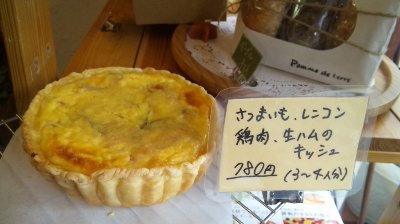 Pomme de terre
さつまいも、レンコン
鶏肉、生ハムの
キッシュ
780円 (3〜4人分)